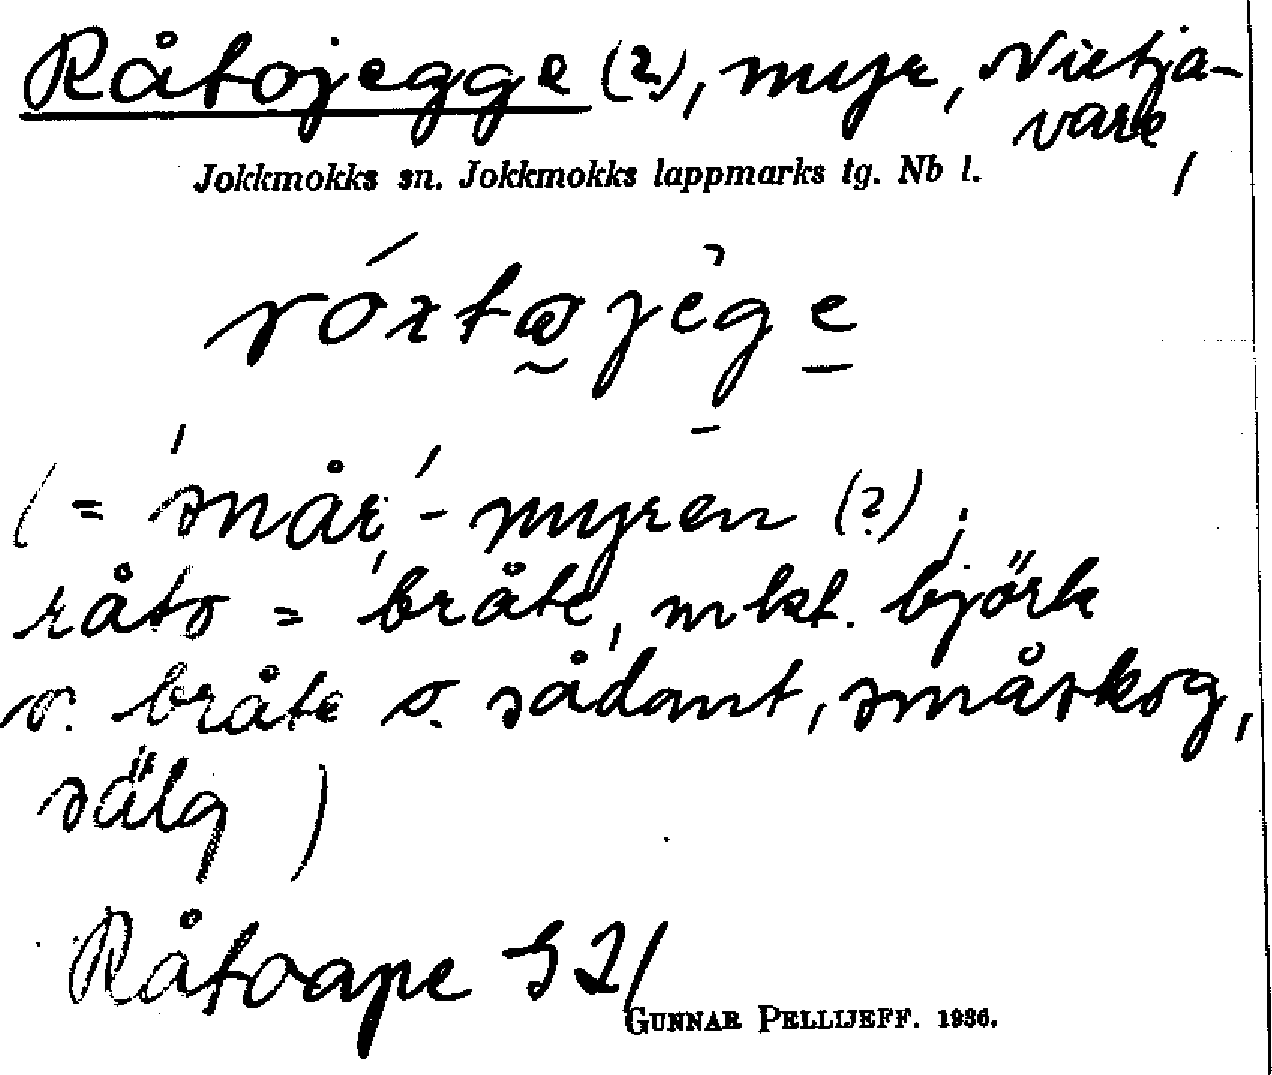 Råtojegge (?), myr, Nietja-
vare,
Jokkmokks sn. Jokkmokks lappmarks tg. Nb l.
(= 'snår'-myren (?);
råto = 'bråte', mkt. björk
o. bråte o. sådant, småskog,
sälg)
Råtoape
GUNNAR PELLIJEFF. 1936.